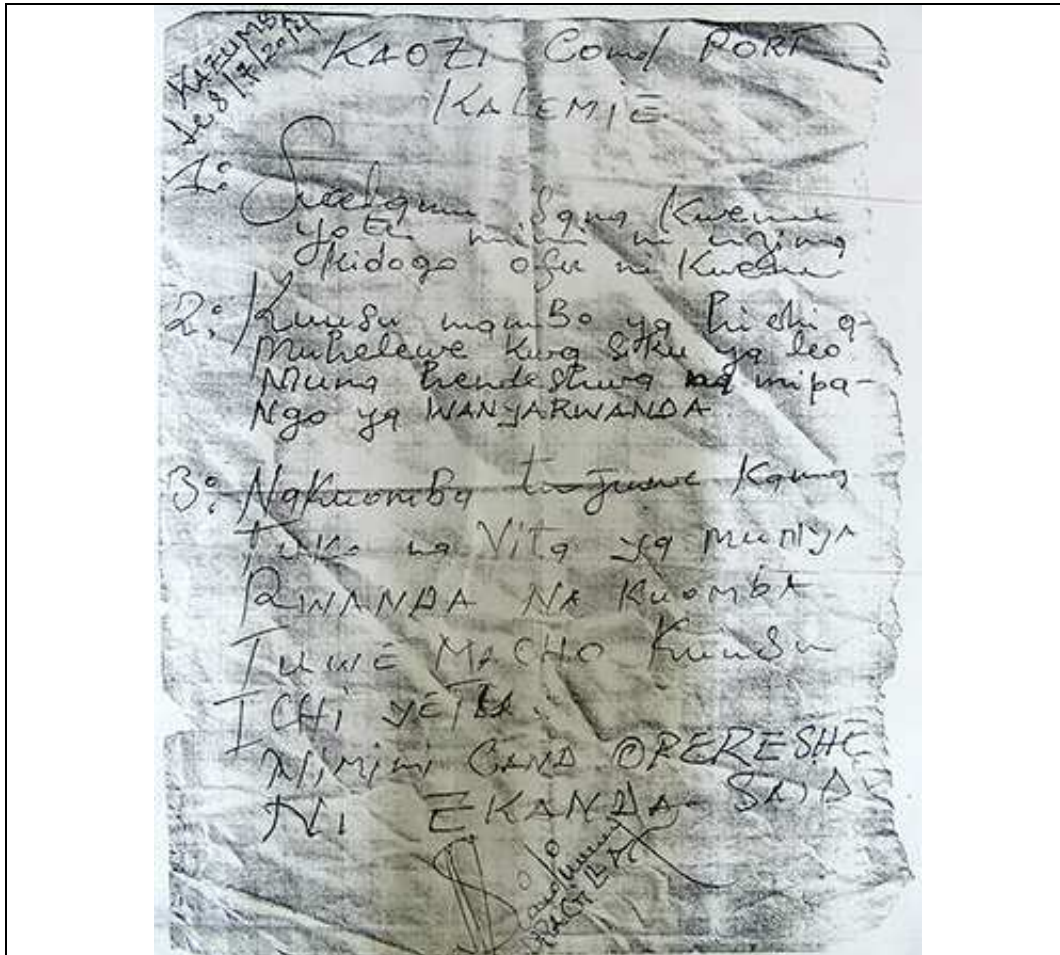 KAZUMBA
le 8/7/2014
KAOZi Comd PORT
KALEMIE
1: Saalamu Sana Kwenu
yote mimi ni mzima
kidogo ofu ni Kwenu
2: Kuusu mamBo ya hi chi a-
Muhelewe Kura siku ya leo
Muna hendeshwa na mipa-
Ngo ya WANYARWANDA
3: NaKuomBa tujuwe Kama
Tuko na Vita ya muNyA
RWANDA NA KuombA
TuwE MACHO Kuusu
I CHi yETU.
Ni mimi Cama OPERESHE
Ni EKANDA SAiDi